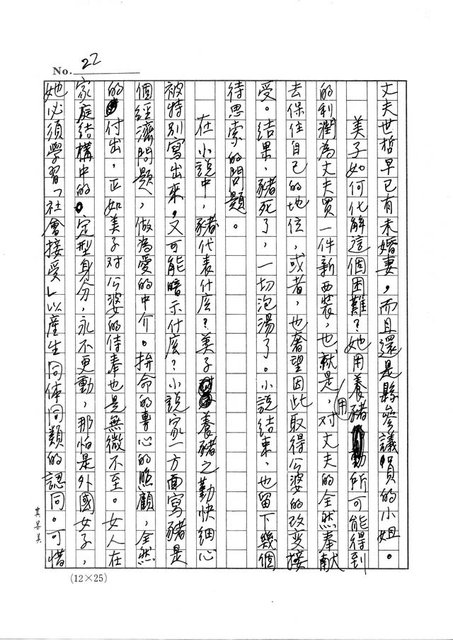 No. 22
丈夫世哲早已有未婚妻，而且還是縣參議員的小姐。
美子如何化解這個困難？她用養豬所可能得到
的利潤為丈夫買一件新西裝，也就是，用對丈夫的全然奉獻
去保住自己的地位，或者，也奢望因此取得公婆的改變接
受。結果，豬死了，一切泡湯了。小說結束，也留下幾個
待思索的問題。
在小說中，豬代表什麼？美子養豬之勤快細心
被特別寫出來，又可能暗示什麼？小說家一方面寫豬是
個經濟問題，做為愛的中介。拚命的專心的照顧，全然
的付出，正如美子對公婆的侍奉也是無微不至。女人在
家庭結構中的定型身分，永不更動，那怕是外國女子，
她必須學習「社會接受」以產生同体同類的認同。可惜
(12×25)